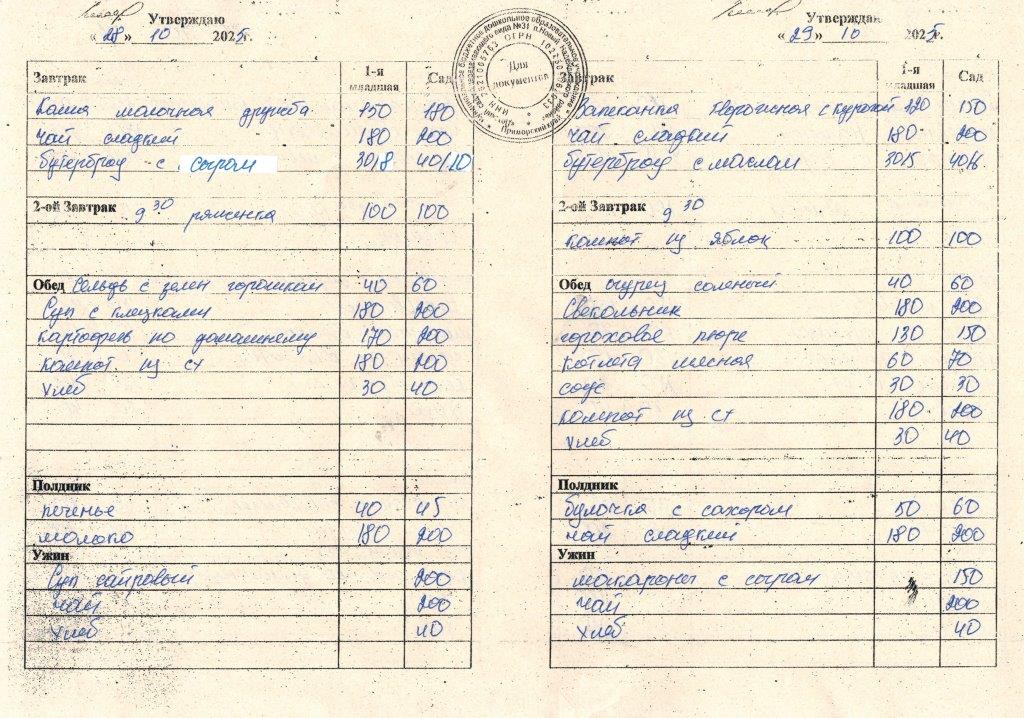 Утверждаю
«28» 10 2025г.
Завтрак 1-я младшая Сад
Каша молочная дружба 150 180
Чай сладкий 180 200
бутерброд с сыром 30/8 40/10
2-ой Завтрак 9 30 ряженка 100 100
Обед Сельдь с зелен горошком 40 60
Суп с клецками 180 200
Картофель по домашнему 170 200
Компот из ст 180 200
Хлеб 30 40
Полдник
печенье 40 45
молоко 180 200
Ужин
Суп сайровый 200
Чай 200
Хлеб 40
Для документов
Утверждаю
«29» 10 2025г.
Завтрак 1-я младшая Сад
Запеканка творожная с курагой 120 150
Чай сладкий 180 200
бутерброд с маслом 30/5 40/6
2-ой Завтрак 9 30
Компот из яблок 100 100
Обед огурец соленый 40 60
Свекольник 180 200
гороховое пюре 130 150
Котлета мясная 60 70
соус 30 30
Компот из ст 180 200
Хлеб 30 40
Полдник
булочка с сахаром 50 60
чай сладкий 180 200
Ужин
макароны с сыром 150
Чай 200
Хлеб 40